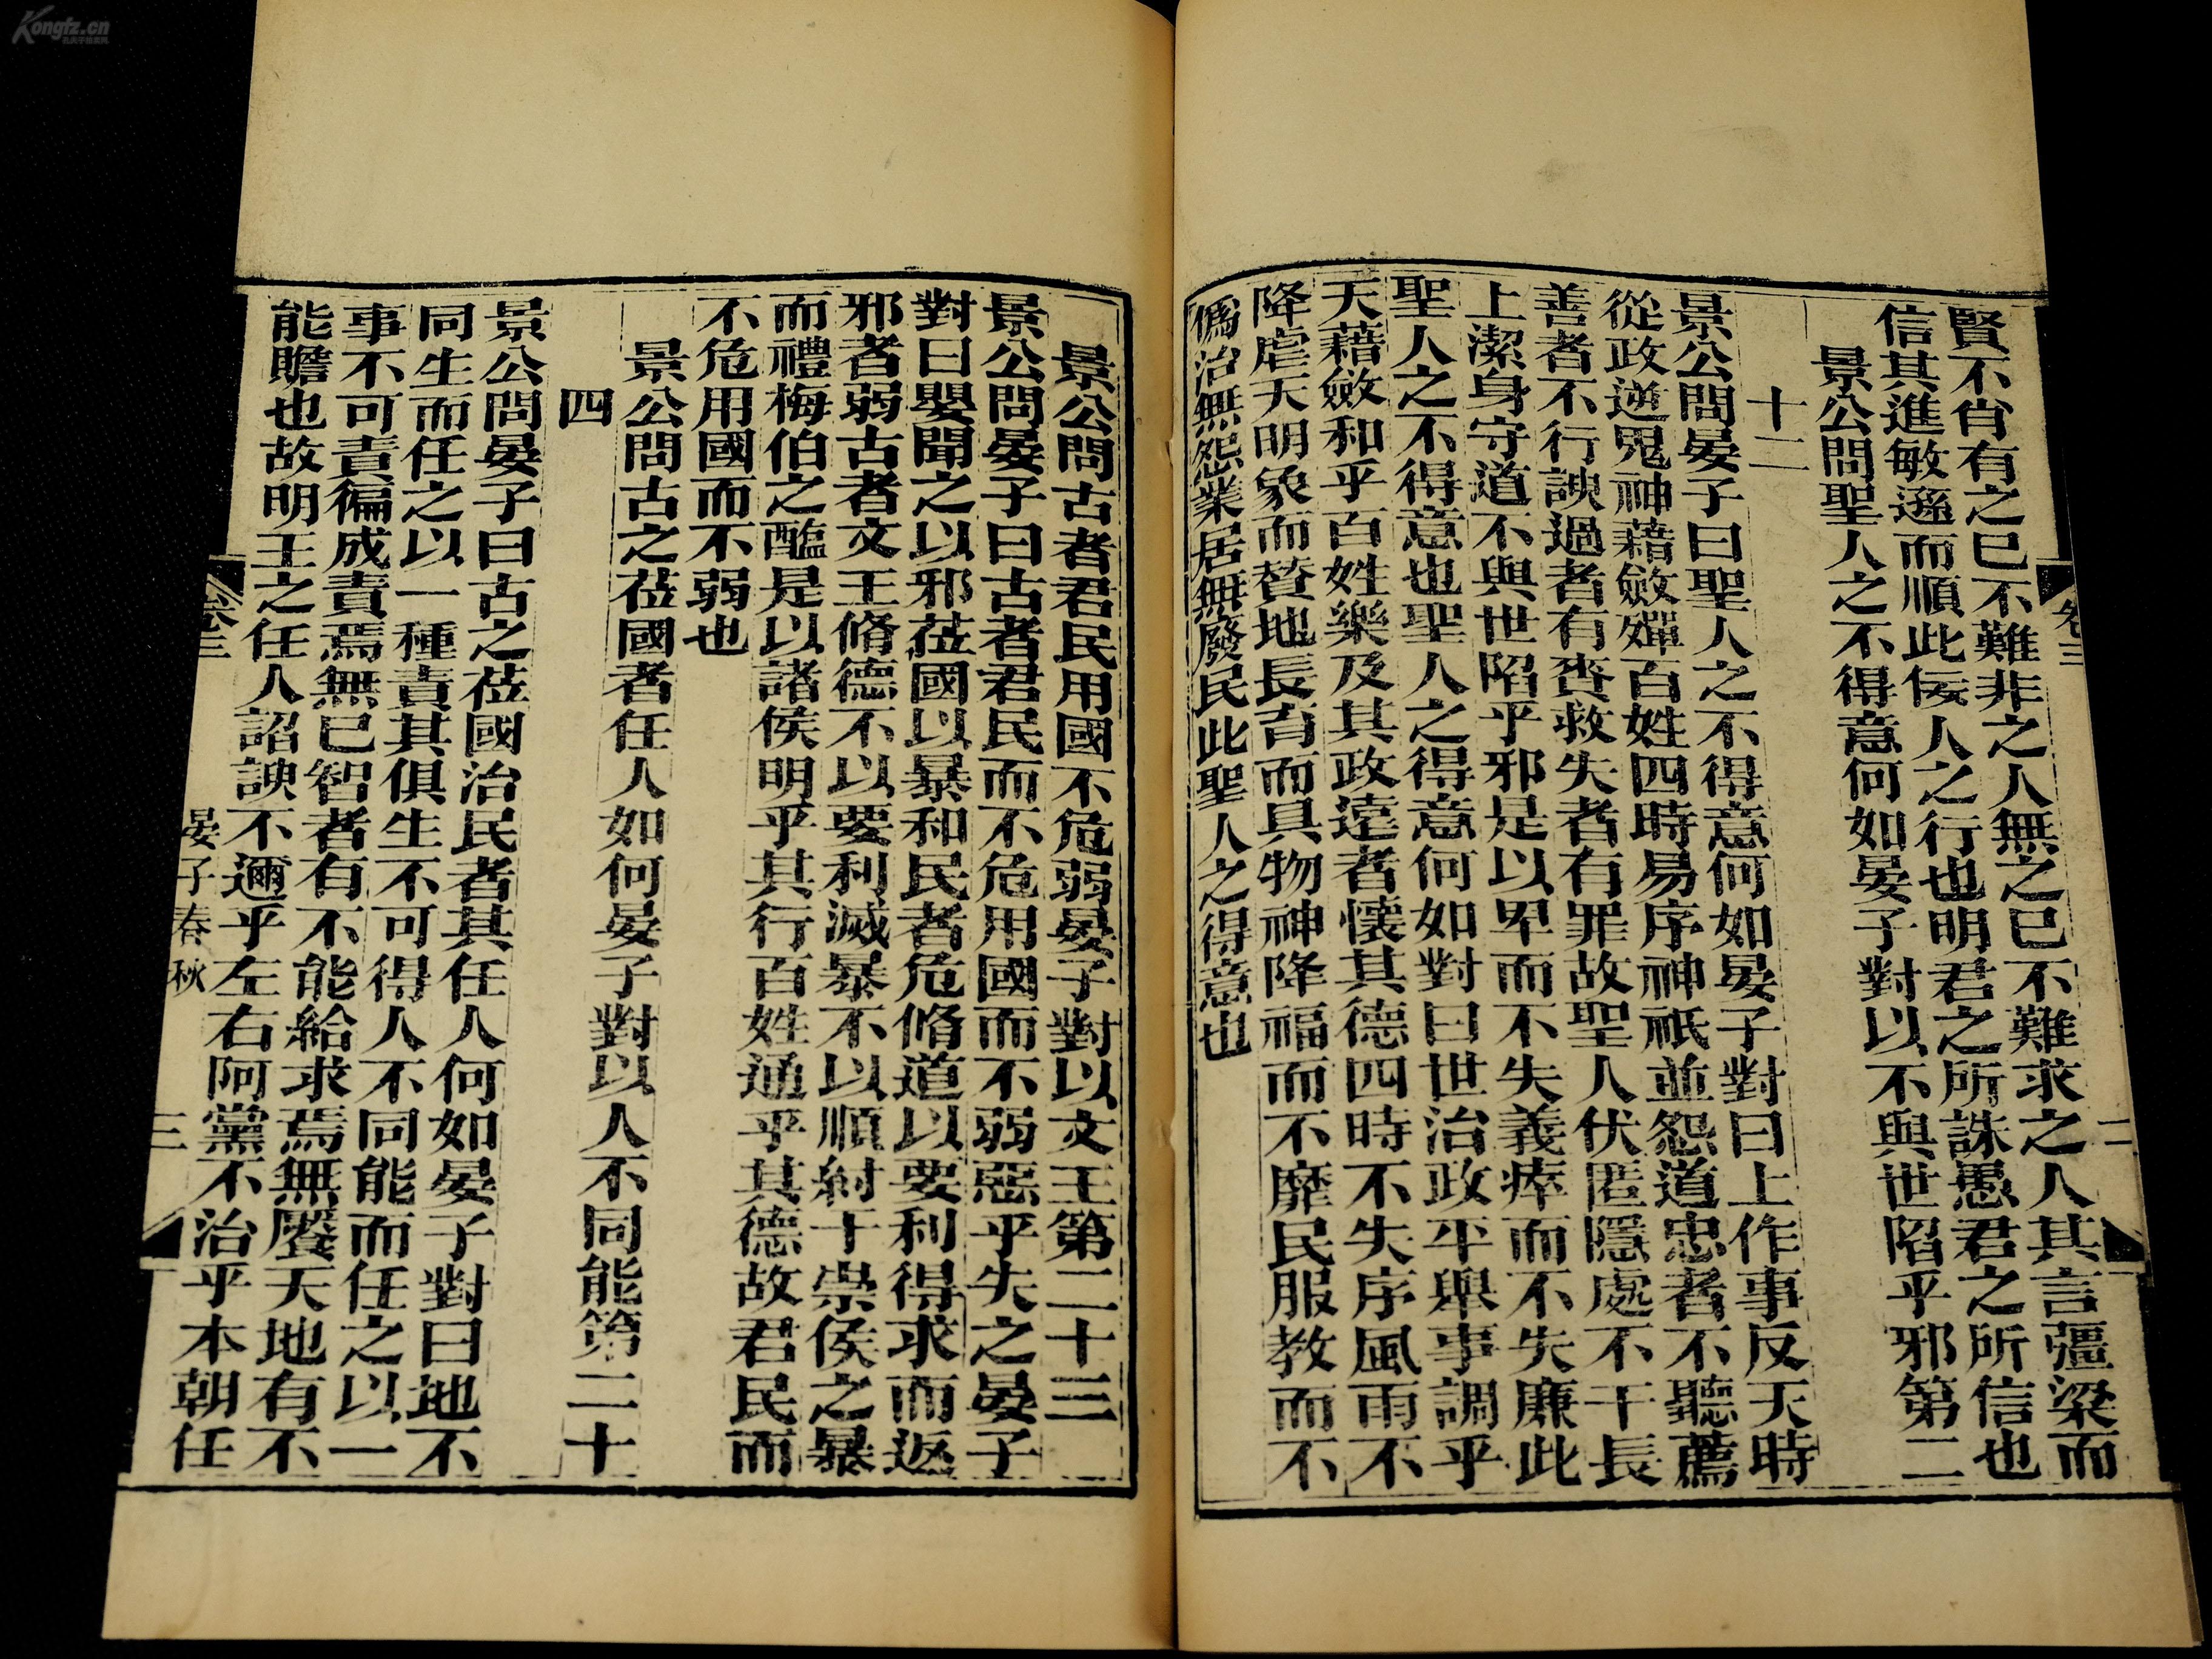 賢不肖有之已不難非之人無之已不難求之人其言彊梁而
信其進敏遜而順此佞人之行也明君之所誅愚君之所信也
景公問聖人之不得意何如晏子對以不與世陷乎邪第二
十二
景公問晏子曰聖人之不得意何如晏子對曰上作事反天時
從政逆鬼神藉斂殫百姓四時易序神祇並怨道忠者不聽薦
善者不行諛過者有賚救失者有罪故聖人伏匿隱處不干長
上潔身守道不與世陷乎邪是以卑而不失義瘁而不失廉此
聖人之不得意也聖人之得意何如對曰世治政平舉事調乎
天藉斂和乎百姓樂及其政遠者懷其德四時不失序風雨不
降虐天明象而贊地長育而具物神降福而不靡民服教而不
僞治無怨業居無廢民此聖人之得意也
卷三
二
景公問古者君民用國不危弱晏子對以文王第二十三
景公問晏子曰古者君民而不危用國而不弱惡乎失之晏子
對曰嬰聞之以邪莅國以暴和民者危脩道以要利得求而返
邪者弱古者文王脩德不以要利滅暴不以順紂干崇侯之暴
而禮梅伯之醢是以諸侯明乎其行百姓通乎其德故君民而
不危用國而不弱也
景公問古之莅國者任人如何晏子對以人不同能第二十
四
景公問晏子曰古之莅國治民者其任人何如晏子對曰地不
同生而任之以一種責其俱生不可得人不同能而任之以一
事不可責徧成責焉無已智者有不能給求焉無饜天地有不
能贍也故明王之任人諂諛不邇乎左右阿黨不治乎本朝任
卷三
晏子春秋
三
Kongfz.cn